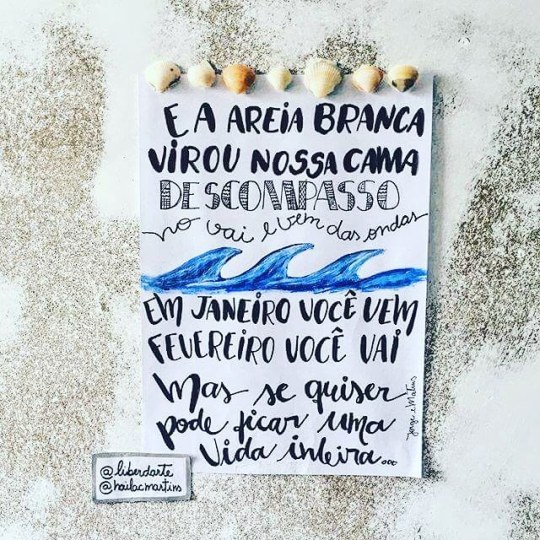 E A AREIA BRANCA
VIROU NOSSA CAMA
DESCOMPASSO
no vai e vem das ondas
EM JANEIRO VOCÊ VEM
FEVEREIRO VOCÊ VAI
Mas se quiser
pode ficar uma
vida inteira...
Jorge e Mateus
@liberdarte
@hailacmartins